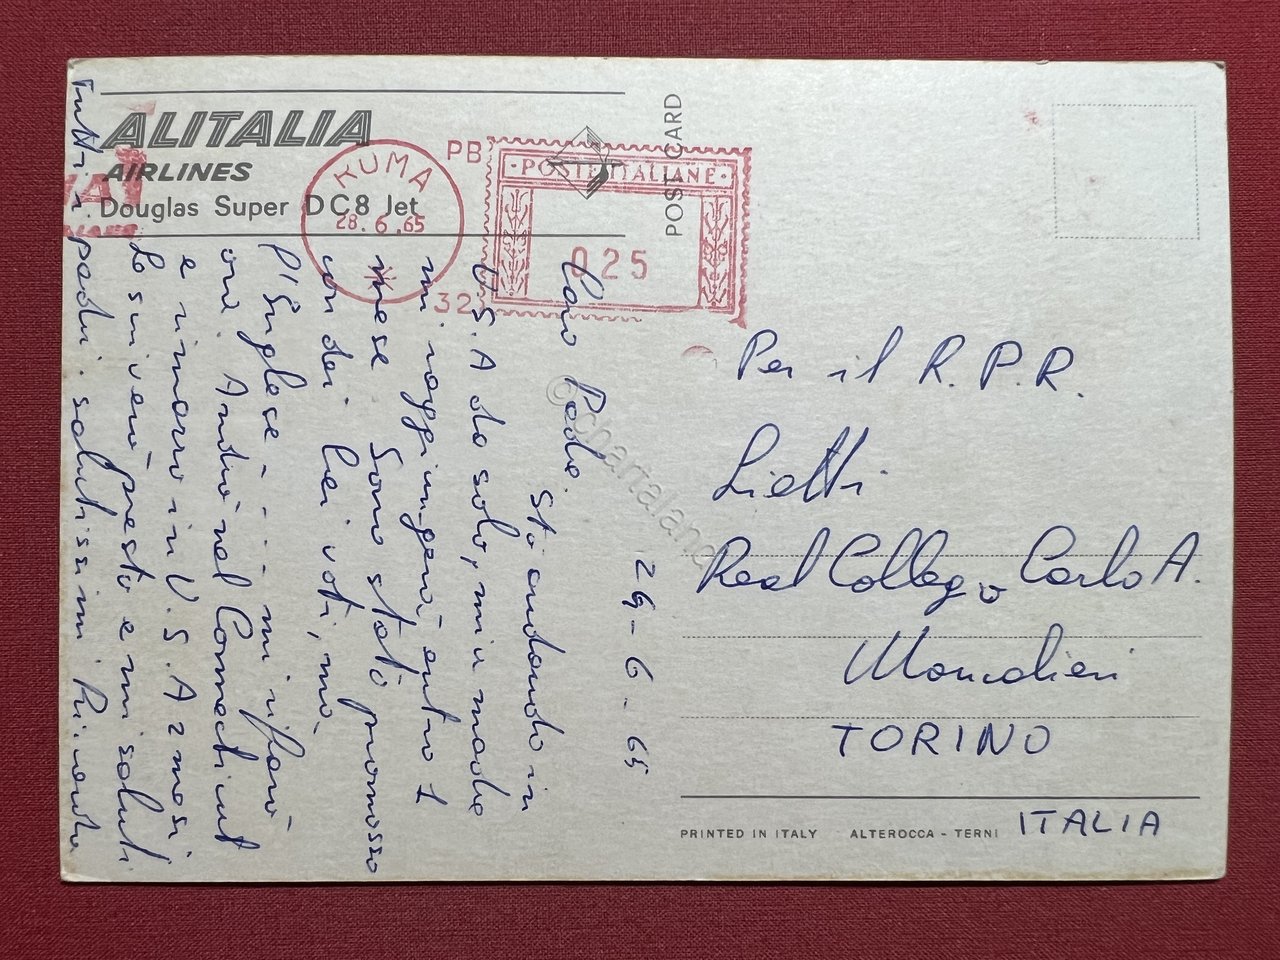 ALITALIA
AIRLINES
Douglas Super DC8 Jet
POST CARD
ROMA
28.6.65
PB
32
POSTE ITALIANE
025
24-6-65
Caro Padre.
Sto andando in
U.S.A da solo, mia madre
mi raggiungerà entro 1
mese. Sono stato promosso
con dei bei voti, ma
l'Inglese - - - mi rifarò
ora. Andrò nel Connecticut
e rimarrò in U.S.A 2 mesi
Le scriverò presto e mi saluti
tutti i padri. salutissimi Riccardo
Per il R.P.R.
Lietti
Real Collegio Carlo A.
Moncalieri
TORINO
ITALIA
PRINTED IN ITALY ALTEROCCA - TERNI
© chartaland